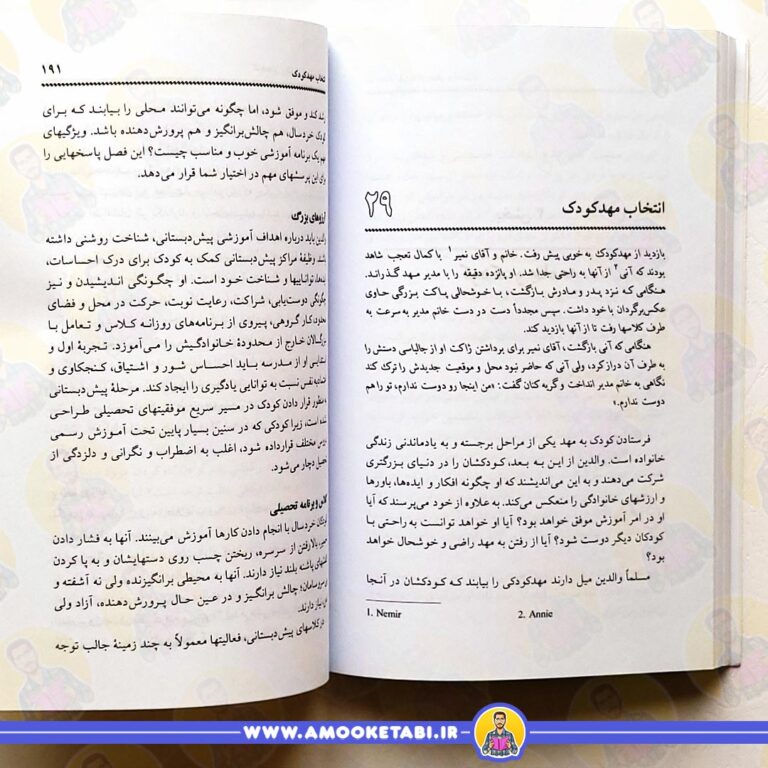 انتخاب مهدکودک ۲۹
بازدید از مهدکودک به خوبی پیش رفت. خانم و آقای نمیر۱ با کمال تعجب شاهد
بودند که آنی۲ از آنها به راحتی جدا شد. او پانزده دقیقه را با مدیر مهد گذراند.
هنگامی که نزد پدر و مادرش بازگشت، با خوشحالی پاکت بزرگی حاوی
عکس‌برگردان با خود داشت. سپس مجدداً دست در دست خانم مدیر به سرعت به
طرف کلاسها رفت تا از آنها بازدید کند.
هنگامی که آنی بازگشت، آقای نمیر برای برداشتن ژاکت او از جالباسی دستش را
به طرف آن دراز کرد، ولی آنی که حاضر نبود محل و موقعیت جدیدش را ترک کند
نگاهی به خانم مدیر انداخت و گریه کنان گفت: «من اینجا رو دوست ندارم، تو را هم
دوست ندارم.»
فرستادن کودک به مهد یکی از مراحل برجسته و به یادماندنی زندگی
خانواده است. والدین از این به بعد، کودکشان را در دنیای بزرگتری
شرکت می‌دهند و به این می‌اندیشند که او چگونه افکار و ایده‌ها، باورها
و ارزشهای خانوادگی را منعکس می‌کند. به علاوه از خود می‌پرسند که آیا
او در امر آموزش موفق خواهد بود؟ آیا او خواهد توانست به راحتی با
کودکان دیگر دوست شود؟ آیا از رفتن به مهد راضی و خوشحال خواهد
بود؟
مسلماً والدین میل دارند مهدکودکی را بیابند که کودکشان در آنجا
1. Nemir 2. Annie
انتخاب مهدکودک ۱۹۱
رشد کند و موفق شود، اما چگونه می‌توانند محلی را بیابند که برای
کودک خردسال، هم چالش‌برانگیز و هم پرورش‌دهنده باشد. ویژگیهای
مهم یک برنامه آموزشی خوب و مناسب چیست؟ این فصل پاسخهایی را
برای این پرسشهای مهم در اختیار شما قرار می‌دهد.
آرزوهای بزرگ
والدین باید درباره اهداف آموزشی پیش‌دبستانی، شناخت روشنی داشته
باشند. وظیفهٔ مراکز پیش‌دبستانی کمک به کودک برای درک احساسات،
تواناییها و شناخت خود است. او چگونگی اندیشیدن و نیز
چگونگی دوست‌یابی، شراکت، رعایت نوبت، حرکت در محل و فضای
محدود، کار گروهی، پیروی از برنامه‌های روزانه کلاس و تعامل با
بزرگسالان خارج از محدودهٔ خانوادگیش را می‌آموزد. تجربهٔ اول و
او از مدرسه باید احساس شور و اشتیاق، کنجکاوی و
نفس نسبت به توانایی یادگیری را ایجاد کند. مرحلهٔ پیش‌دبستانی
منظور قرار دادن کودک در مسیر سریع موفقیتهای تحصیلی طراحی
شده است، زیرا کودکی که در سنین بسیار پایین تحت آموزش رسمی
دروس مختلف قرار داده شود، اغلب به اضطراب و نگرانی و دلزدگی از
تحصیل دچار می‌شود.
کلاس و برنامه تحصیلی
کودکان خردسال با انجام دادن کارها آموزش می‌بینند. آنها به فشار دادن
بالا رفتن از سرسره، ریختن چسب روی دستهایشان و به پا کردن
کفشهای پاشنه بلند نیاز دارند. آنها به محیطی برانگیزنده ولی نه آشفته و
چالش برانگیز و در عین حال پرورش‌دهنده، آزاد ولی
نیاز دارند.
در کلاسهای پیش‌دبستانی، فعالیتها معمولاً به چند زمینهٔ جالب توجه
WWW.AMOOKETABI.IR